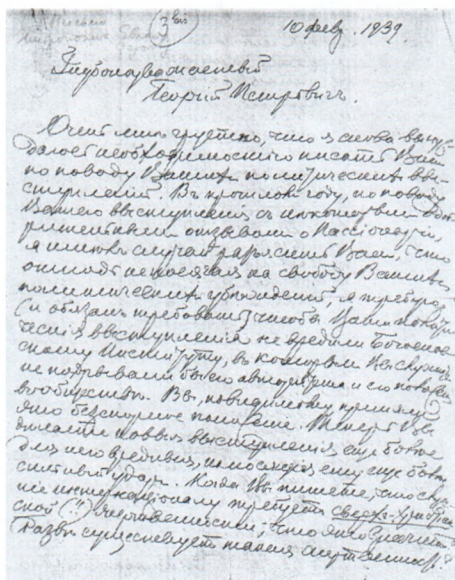 3 bis
10 февр. 1939.
Глубокоуважаемый
Георгий Петрович.
Очень мне грустно, что я снова вынуж-
даюсь необходимостью писать Вам
по поводу Вашихъ политическихъ вы-
ступлений. Въ прошломъ году, по поводу
Вашего выступления съ
отзывами о Пассионарии,
я имелъ случай разъяснить Вамъ, что
отнюдь не посягая на свободу Вашихъ
политическихъ убеждений, я требую
(и обязанъ требовать) чтобы Ваши полити-
ческия выступления не вредили Богослов-
скому Институту, въ которомъ Вы служите,
не подрывали бы его авторитета и его
вообще. Вы, повидимому, приняли
это безспорное положение. Теперь Вы
делаете новыя выступления еще более
для него вредныя, наносящия ему еще более
сильный ударъ. Когда Вы пишете, что служе-
ние интернационалу требуетъ сверхъ-христиан-
ской (!!) что это значитъ?
Разве существуетъ такая